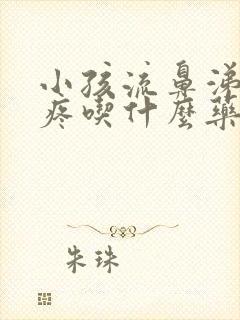 小孩流鼻涕
疼喫什麼藥
朱珠